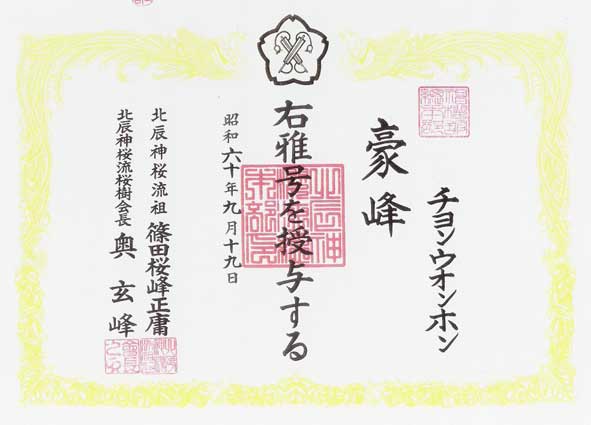 チヨンウオンホン
豪峰
右雅号を授与する
昭和六十年九月十九日
北辰神桜流祖 篠田桜峰正庸
北辰神桜流桜樹会長 奥玄峰